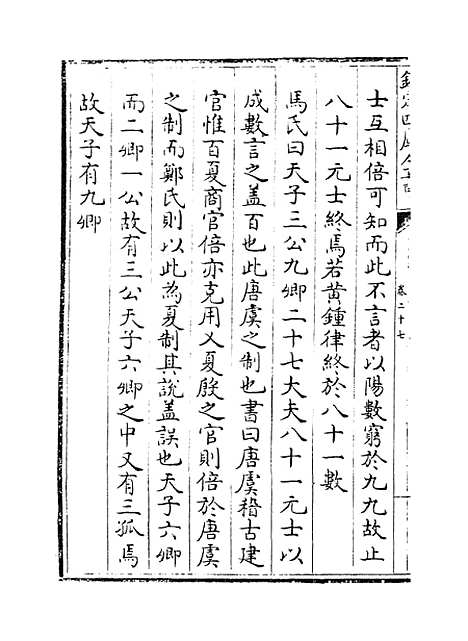 士互相倍可知而此不言者以陽數窮於九九故止
八十一元士終焉若黄鍾律終於八十一數
馬氏曰天子三公九卿二十七大夫八十一元士以
成數言之盖百也此唐虞之制也書曰唐虞稽古建
官惟百夏商官倍亦克用乂夏殷之官則倍於唐虞
之制而鄭氏則以此為夏制其說盖誤也天子六卿
而二卿一公故有三公天子六卿之中又有三孤焉
故天子有九卿
卷二十七